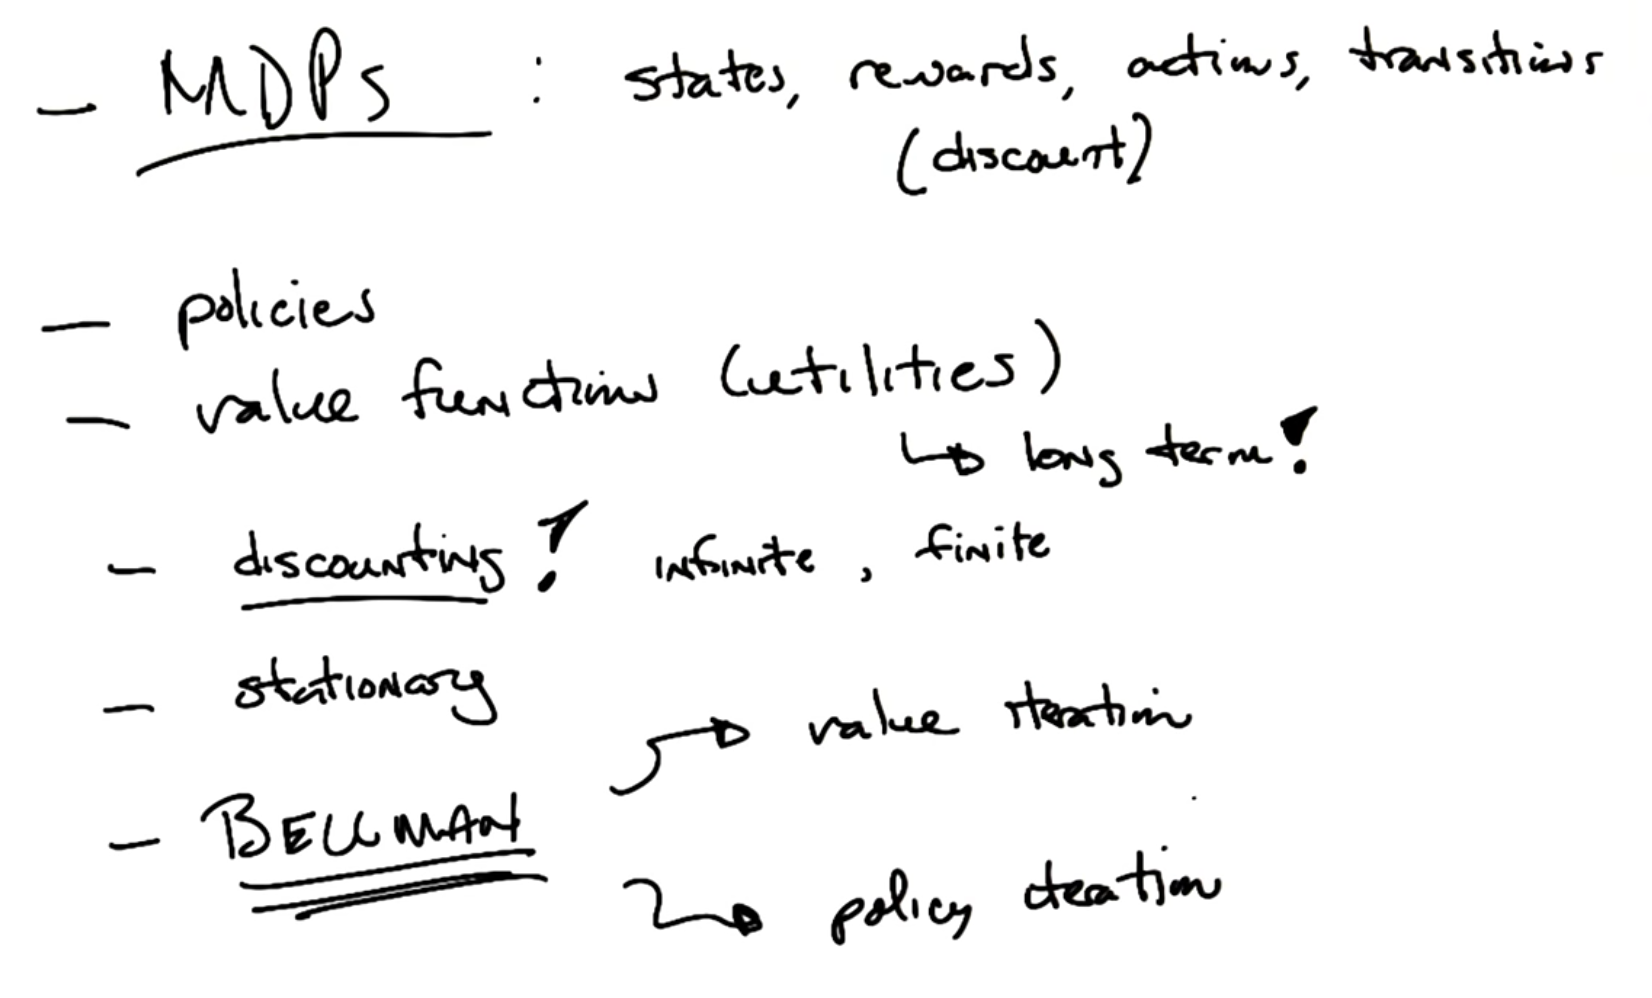 – MDPs : states, rewards, actions, transitions
(discount)
– policies
– value functions (utilities)
↳ long term!
– discounting! infinite, finite
– stationary
→ value iteration
– BELLMAN
→ policy iteration